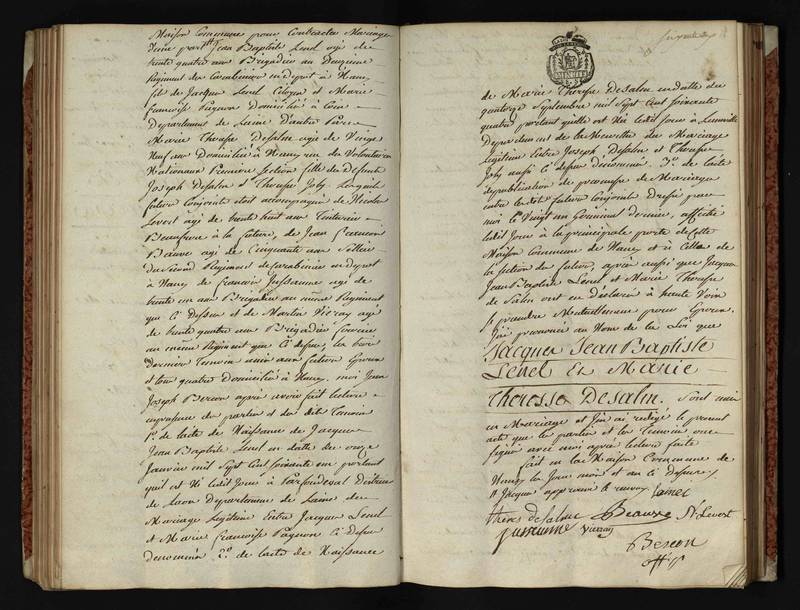 Maison Commune pour Contracter Mariage
D'une part Jean Baptiste Lenel agé de
trente quatre ans Brigadier au Deuxieme
Regiment de Carabiniers en depot à Nancy
fils de Jacques Lenel Citoyen et Marie
francoise Pagnon Domicilié à
Departement de Laisne D'autre Part
Marie Therese Desalm agée de Vingt
Neuf ans Domiciliée à Nancy rue des Volontaires
Nationaux Premiere Section fille des Defunts
Joseph Desalm et Therese Joly. Lesquels
futurs Conjoints etoit accompagnés de Nicolas
Levert agé de trente huit ans Teinturier
Beaufrere à la future, de Jean francois
Bauve agé de Cinquante ans Sellier
du Second Regiment de Carabiniers en depot
à Nancy de francois Jussaume agé de
trente un ans Brigadier au même Regiment
que Ci dessus et de Martin Vieray agé
de trente quatre ans Brigadier fourier
au même Regiment que Ci dessus, les trois
derniers Temoins amis aux futurs Epoux
et tous quatre Domiciliés à Nancy. moi Jean
Joseph Berson après avoir fait lecture
en presence des parties et des dits Temoins
1º. de l'acte de Naissance de Jacques
Jean Baptiste Lenel en datte du onze
Janvier mil Sept Cent Soixante un portant
qu'il est Né ledit Jour à Parfondeval District
de Laon Departement de Laisne du
Mariage Legitime Entre Jacques Lenel
et Marie francoise Pagnon Ci dessus
denommés 2º. de l'acte de Naissance
de Marie Therese Desalm en datte du
quatorze Septembre mil Sept Cent Soixante
quatre portant qu'elle est Née ledit Jour à Luneville
Departement de la Meurthe du Mariage
Legitime Entre Joseph Desalm et Therese
Joly aussi Ci dessus denommés. 3º. de l'acte
de publication de promesse de Mariage
entre lesdits futurs Conjoints Dressé par
moi le Vingt un Germinal Dernier, affiché
ledit Jour à la principale porte de Cette
Maison Commune de Nancy et à Celle de
la Section du futur, après aussi que Jacques
Jean Baptiste Lenel et Marie Therese
de Salm ont eu Declaré à haute Voix
se prendre Mutuellement pour Epoux.
J'ai prononcé au Nom de la Loi que
Jacques Jean Baptiste
Lenel Et Marie
Theresse Desalm. Sont unis
en Mariage et J'ai redigé le present
acte que les parties et les Temoins ont
signé avec moi après lecture faite
fait en la Maison Commune de
Nancy les Jour mois et an Ci dessus,
Jacques approuvé le renvoy. Lainel
theres desalme Beauve Ns Levert
Jussaume Vieray
Berson
off. p.